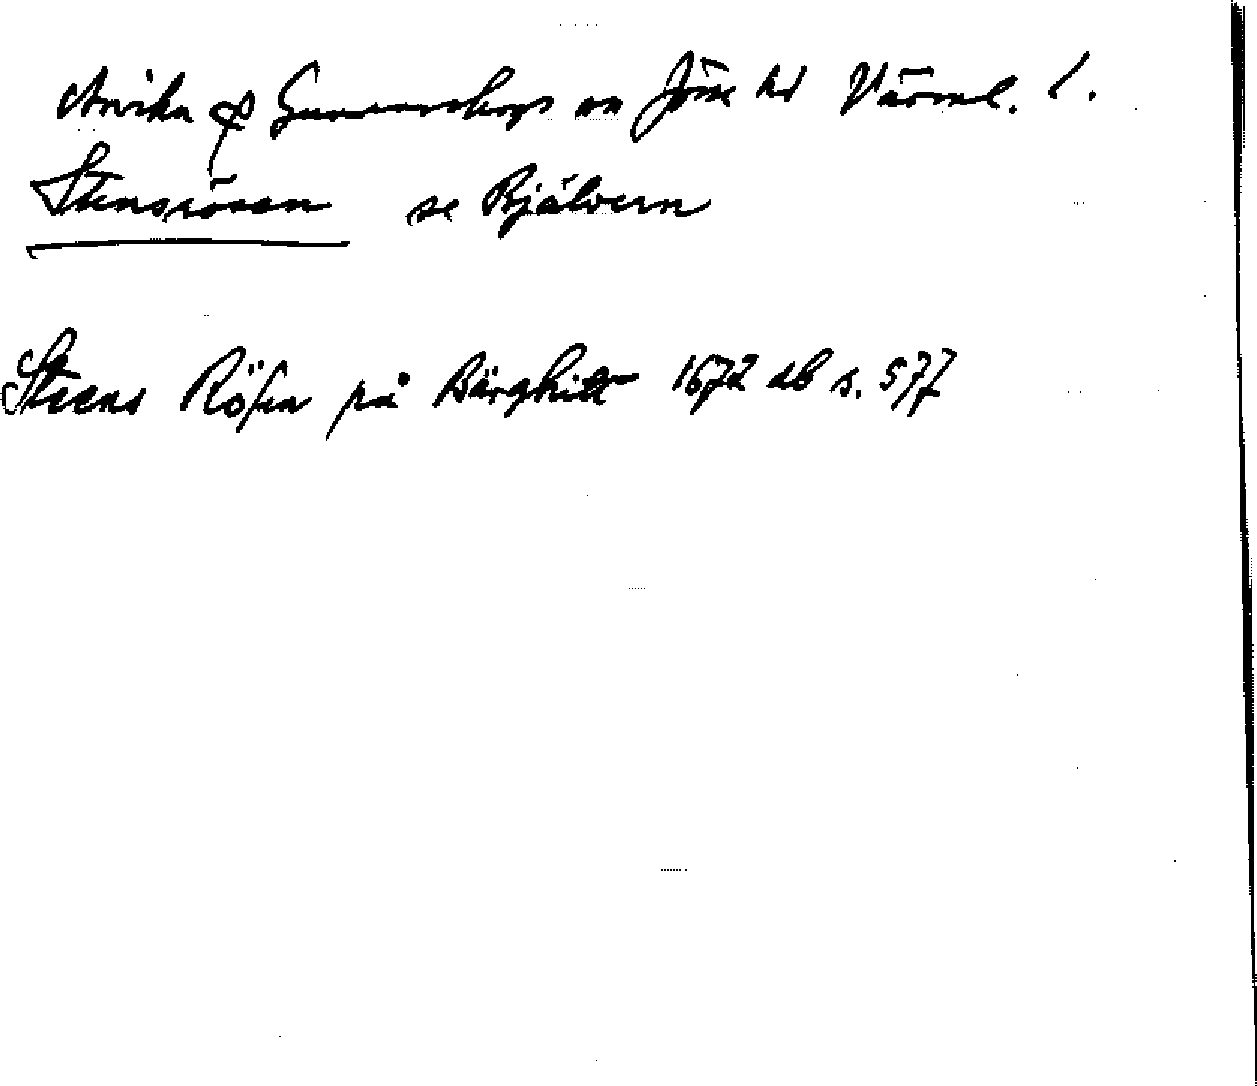 Arvika & Gunnarskogs en Jösse hd Värml. l.
Stensrösen se Bjälvern
Steens Rösen på Bärghitt 1672 db s. 577